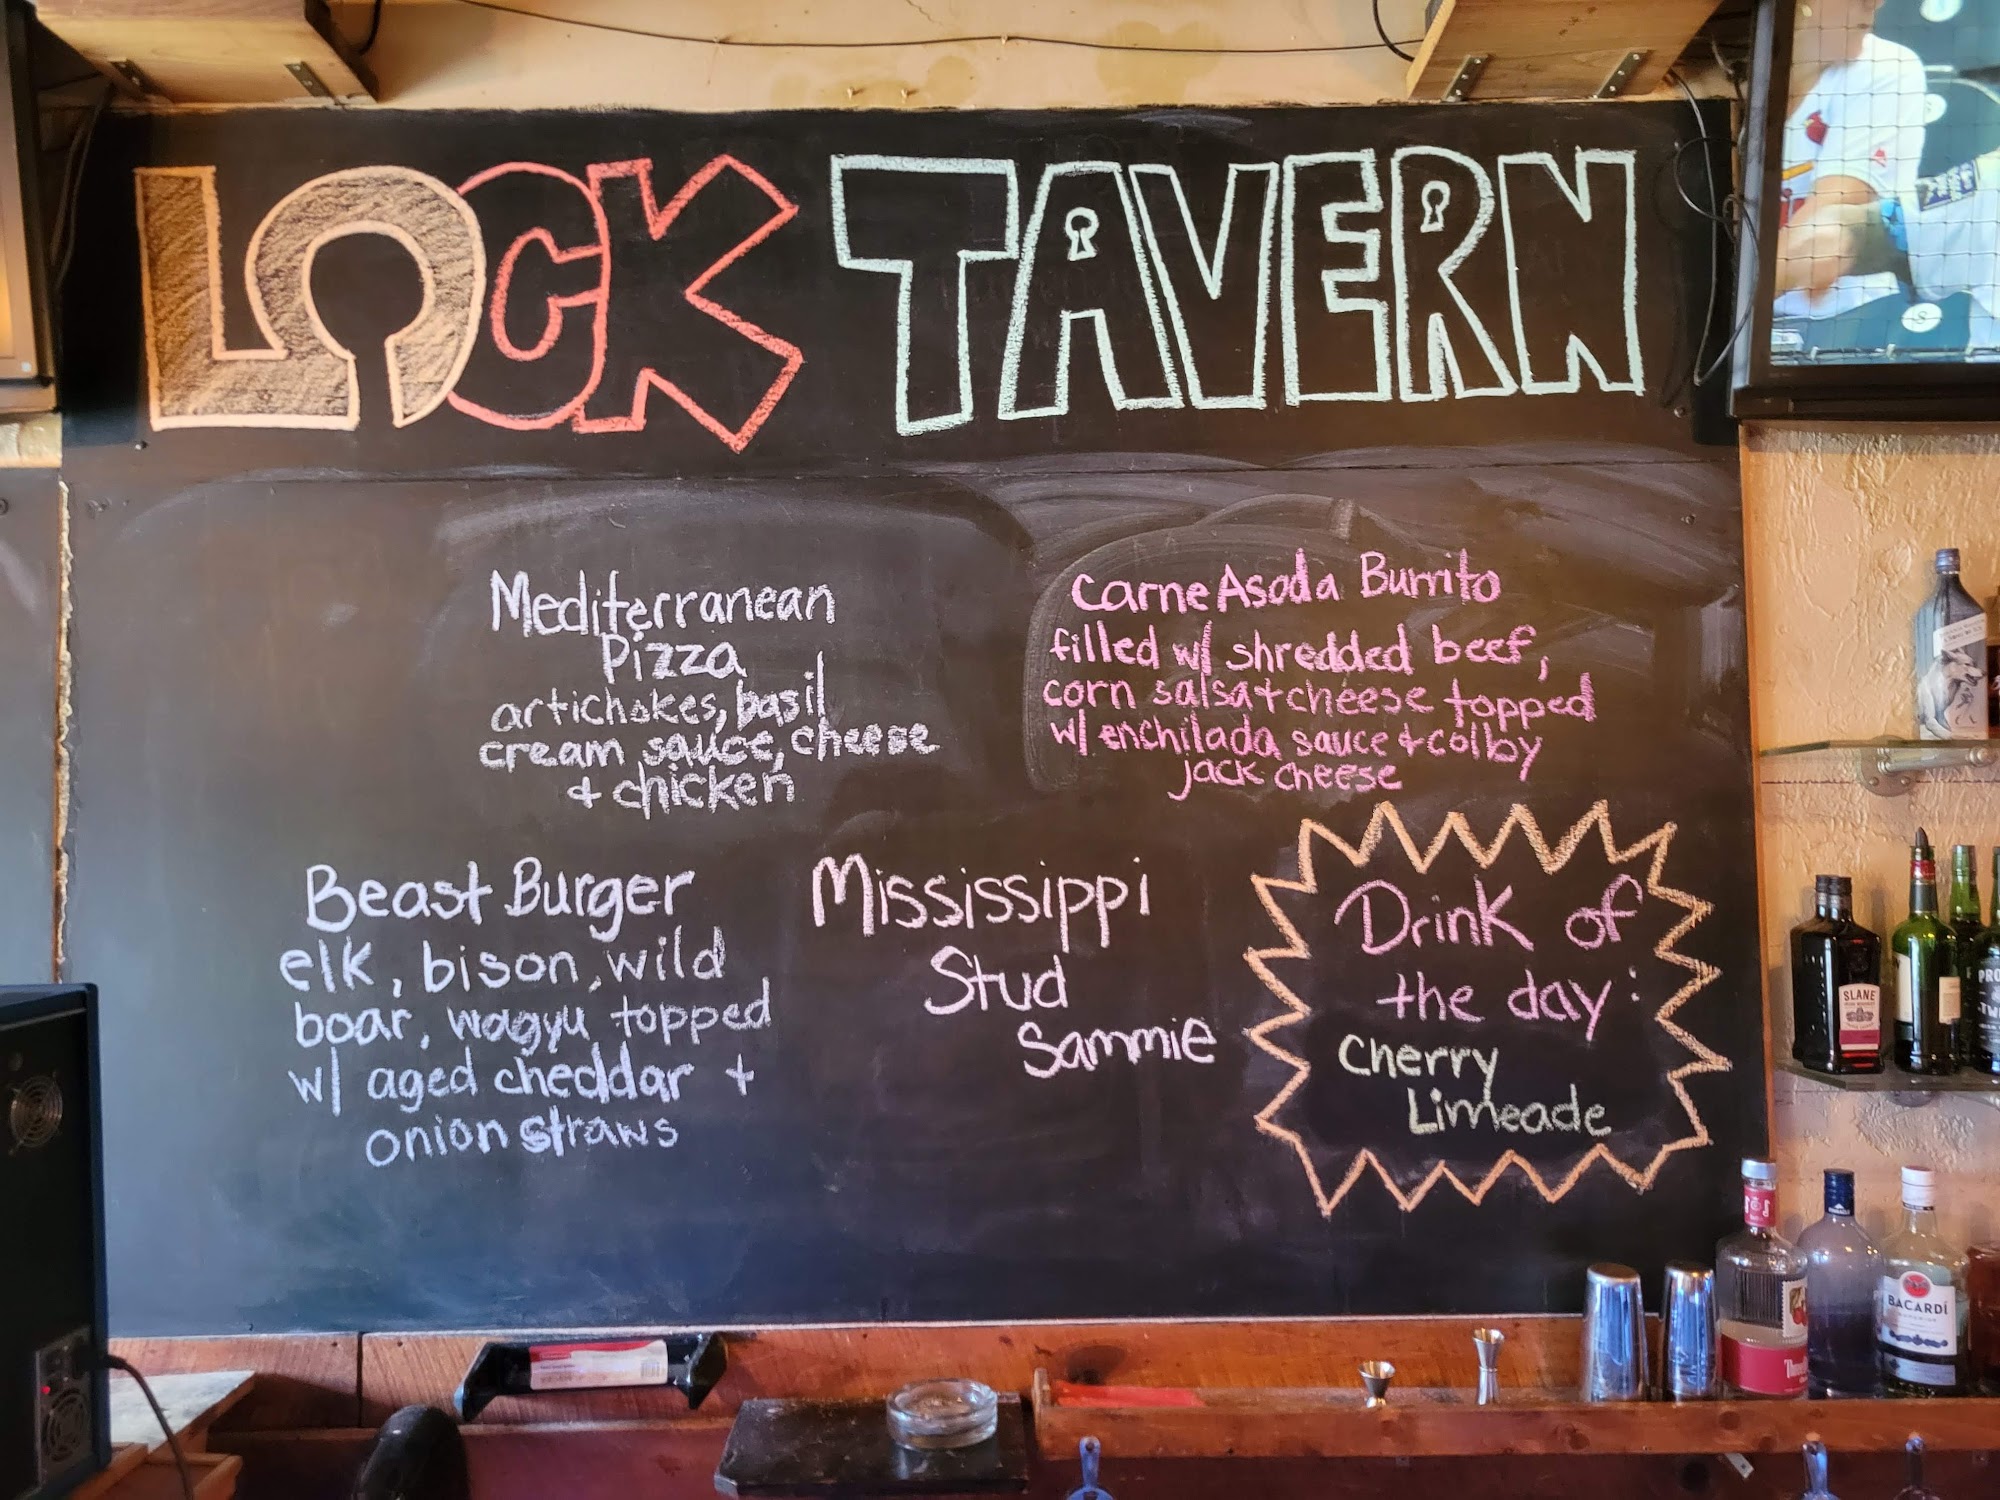 LOCK TAVERN
Mediterranean
Pizza
artichokes, basil
cream sauce, cheese
+ chicken
Carne Asada Burrito
filled w/ shredded beef,
corn salsa + cheese topped
w/ enchilada sauce + colby
jack cheese
Beast Burger
elk, bison, wild
boar, wagyu topped
w/ aged cheddar +
onion straws
Mississippi
Stud
Sammie
Drink of
the day:
Cherry
Limeade
SLANE
BACARDÍ